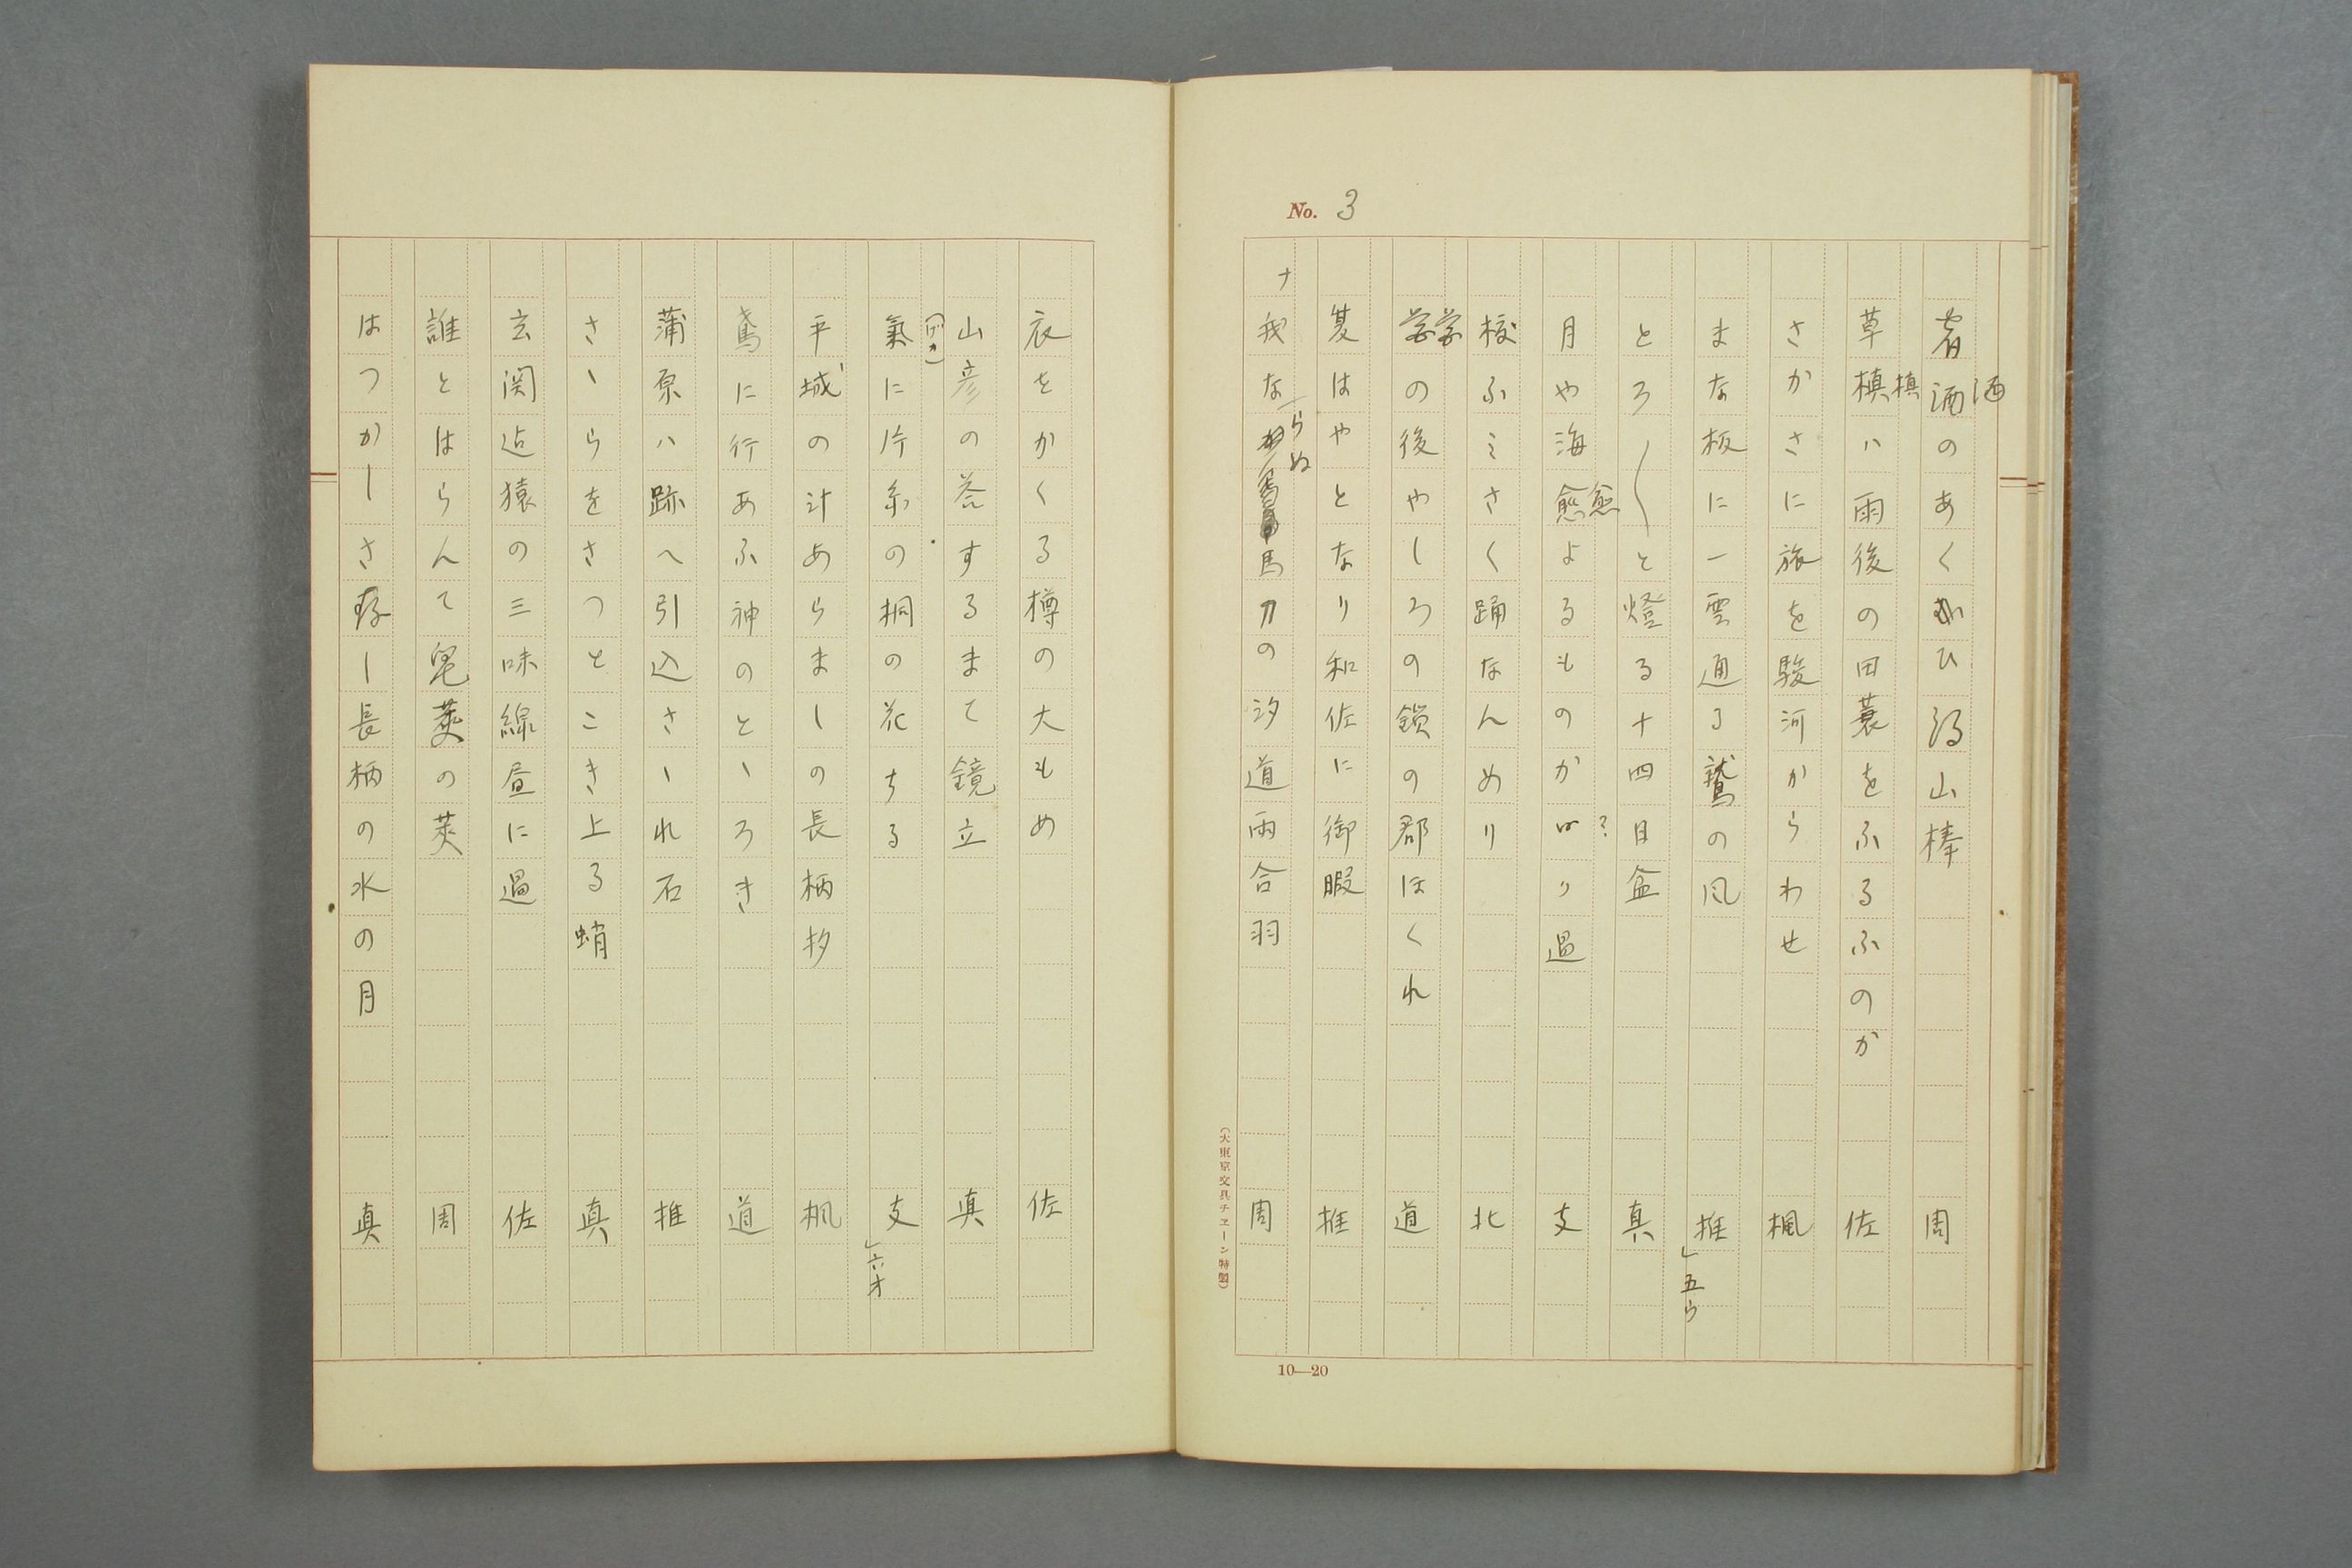 No. 3
肴酒のあくおひ得山棒 周
草槙ハ雨後の田蓑をふるふのか 佐
さかさに旅を駿河からわせ 楓
まな板に一雲通る鷲の風 推」五ウ
とろ〱と燈る十四日盆 真
月や海愈よるものかはり過 支
校ふミさく踊なんめり 北
学の後やしろの鎖の郡ほくれ 道
夏はやとなり和佐に御暇 推
ナ我ならぬ馬刀の汐道雨合羽 周
(大東京文具チエーン特製)
10—20
衣をかくる樽の大もめ 佐
山彦の答するまて鏡立 真
氣に片糸の桐の花ちる 支」六オ
平城の汁あらましの長柄杦 楓
鳶に行あふ神のとゝろき 道
蒲原ハ跡へ引込さゝれ石 推
さゝらをさつとこき上る蛸 真
玄関迄猿の三味線昼に過 佐
誰とはらんて皃莢の莢 周
はつかしさ存し長柄の水の月 真